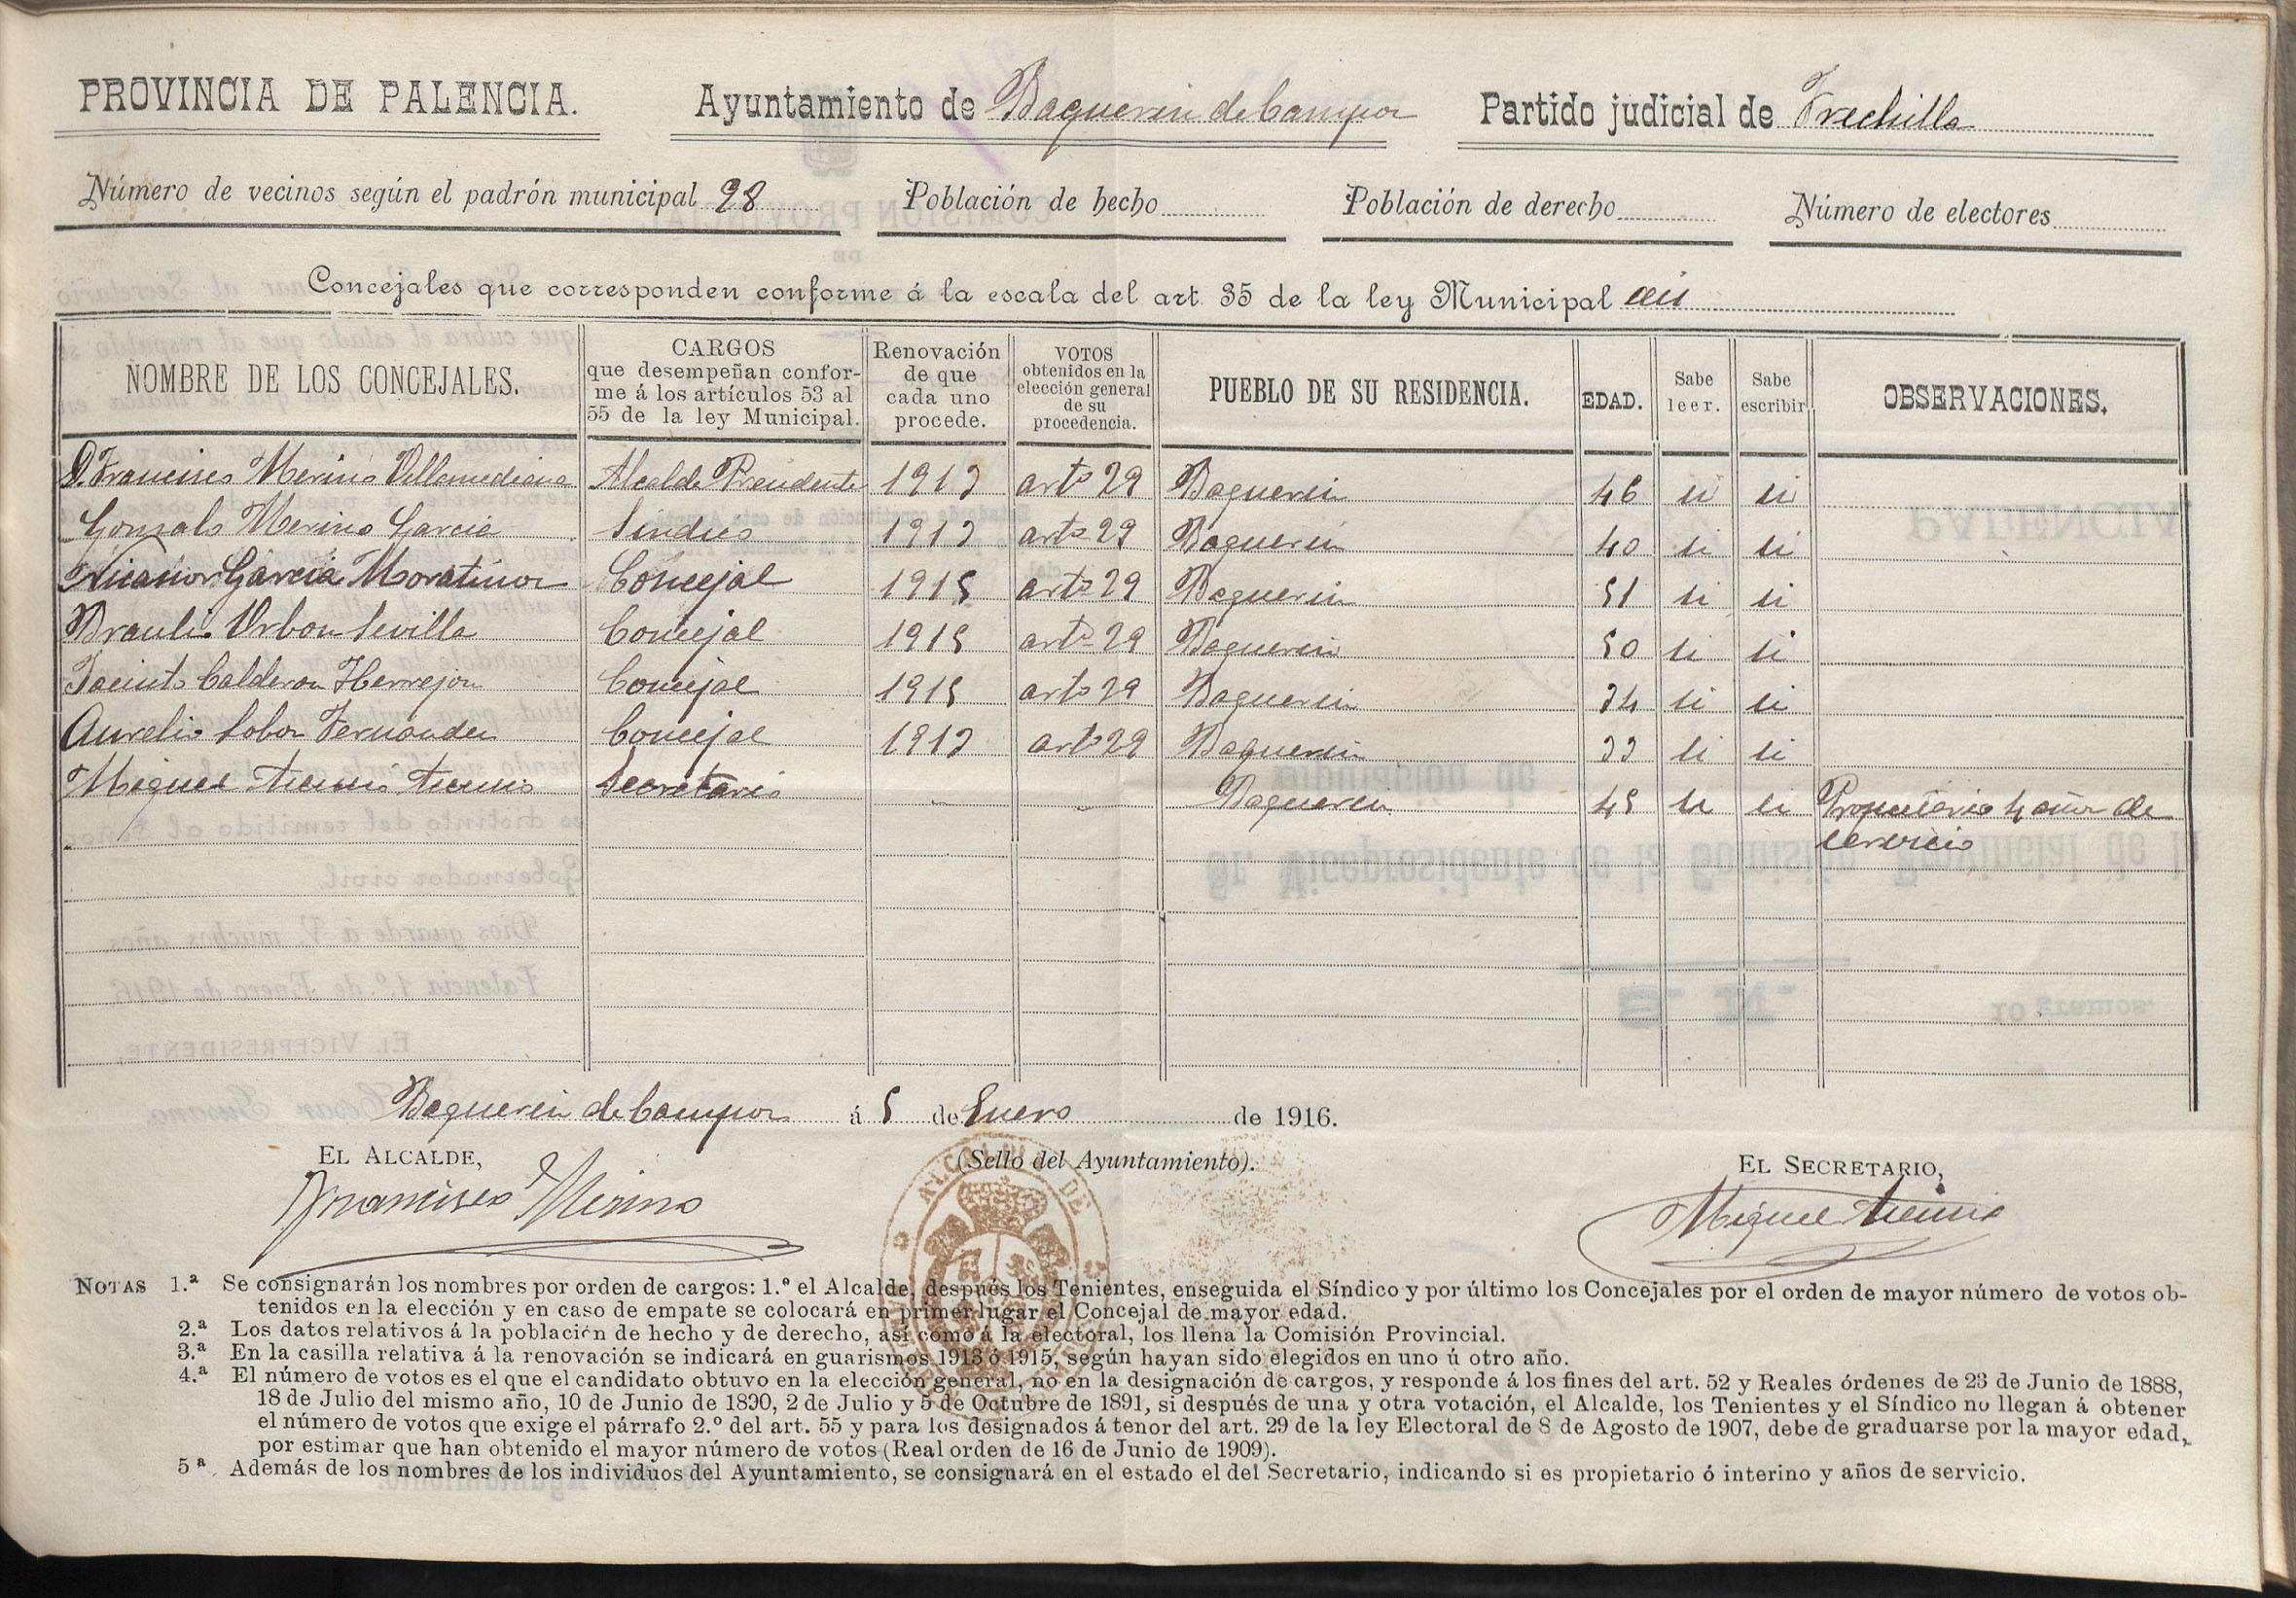 PROVINCIA DE PALENCIA. Ayuntamiento de Baquerin de Campos Partido judicial de Frechilla
Número de vecinos según el padrón municipal 98 Población de hecho Población de derecho Número de electores
Concejales que corresponden conforme á la escala del art. 35 de la ley Municipal seis
NOMBRE DE LOS CONCEJALES. CARGOS que desempeñan conforme á los artículos 53 al 55 de la ley Municipal. Renovación de que cada uno procede. VOTOS obtenidos en la elección general de su procedencia. PUEBLO DE SU RESIDENCIA. EDAD. Sabe leer. Sabe escribir OBSERVACIONES.
D. Francisco Merino Villamediana Alcalde Presidente 1913 artº 29 Baquerin 46 si si
Gonzalo Merino Garcia Sindico 1913 artº 29 Baquerin 40 si si
Nicanor Garcia Moratinos Concejal 1915 artº 29 Baquerin 51 si si
Braulio Urbon Sevilla Concejal 1915 artº 29 Baquerin 50 si si
Jacinto Calderon Herrejon Concejal 1915 artº 29 Baquerin 34 si si
Aurelio Lobon Fernandez Concejal 1913 artº 29 Baquerin 33 si si
Miguel Secretario Baquerin 45 si si Propietario 4 años de
servicio
Baquerin de Campos á 5 de Enero de 1916.
EL ALCALDE, (Sello del Ayuntamiento). EL SECRETARIO,
Francisco Merino Miguel
ALCALDIA DE
NOTAS 1.ª Se consignarán los nombres por orden de cargos: 1.º el Alcalde, después los Tenientes, enseguida el Síndico y por último los Concejales por el orden de mayor número de votos ob-
tenidos en la elección y en caso de empate se colocará en primer lugar el Concejal de mayor edad.
2.ª Los datos relativos á la población de hecho y de derecho, así como á la electoral, los llena la Comisión Provincial.
3.ª En la casilla relativa á la renovación se indicará en guarismos 1913 ó 1915, según hayan sido elegidos en uno ú otro año.
4.ª El número de votos es el que el candidato obtuvo en la elección general, no en la designación de cargos, y responde á los fines del art. 52 y Reales órdenes de 23 de Junio de 1888,
18 de Julio del mismo año, 10 de Junio de 1890, 2 de Julio y 5 de Octubre de 1891, si después de una y otra votación, el Alcalde, los Tenientes y el Síndico no llegan á obtener
el número de votos que exige el párrafo 2.º del art. 55 y para los designados á tenor del art. 29 de la ley Electoral de 8 de Agosto de 1907, debe de graduarse por la mayor edad,
por estimar que han obtenido el mayor número de votos (Real orden de 16 de Junio de 1909).
5ª. Además de los nombres de los individuos del Ayuntamiento, se consignará en el estado el del Secretario, indicando si es propietario ó interino y años de servicio.